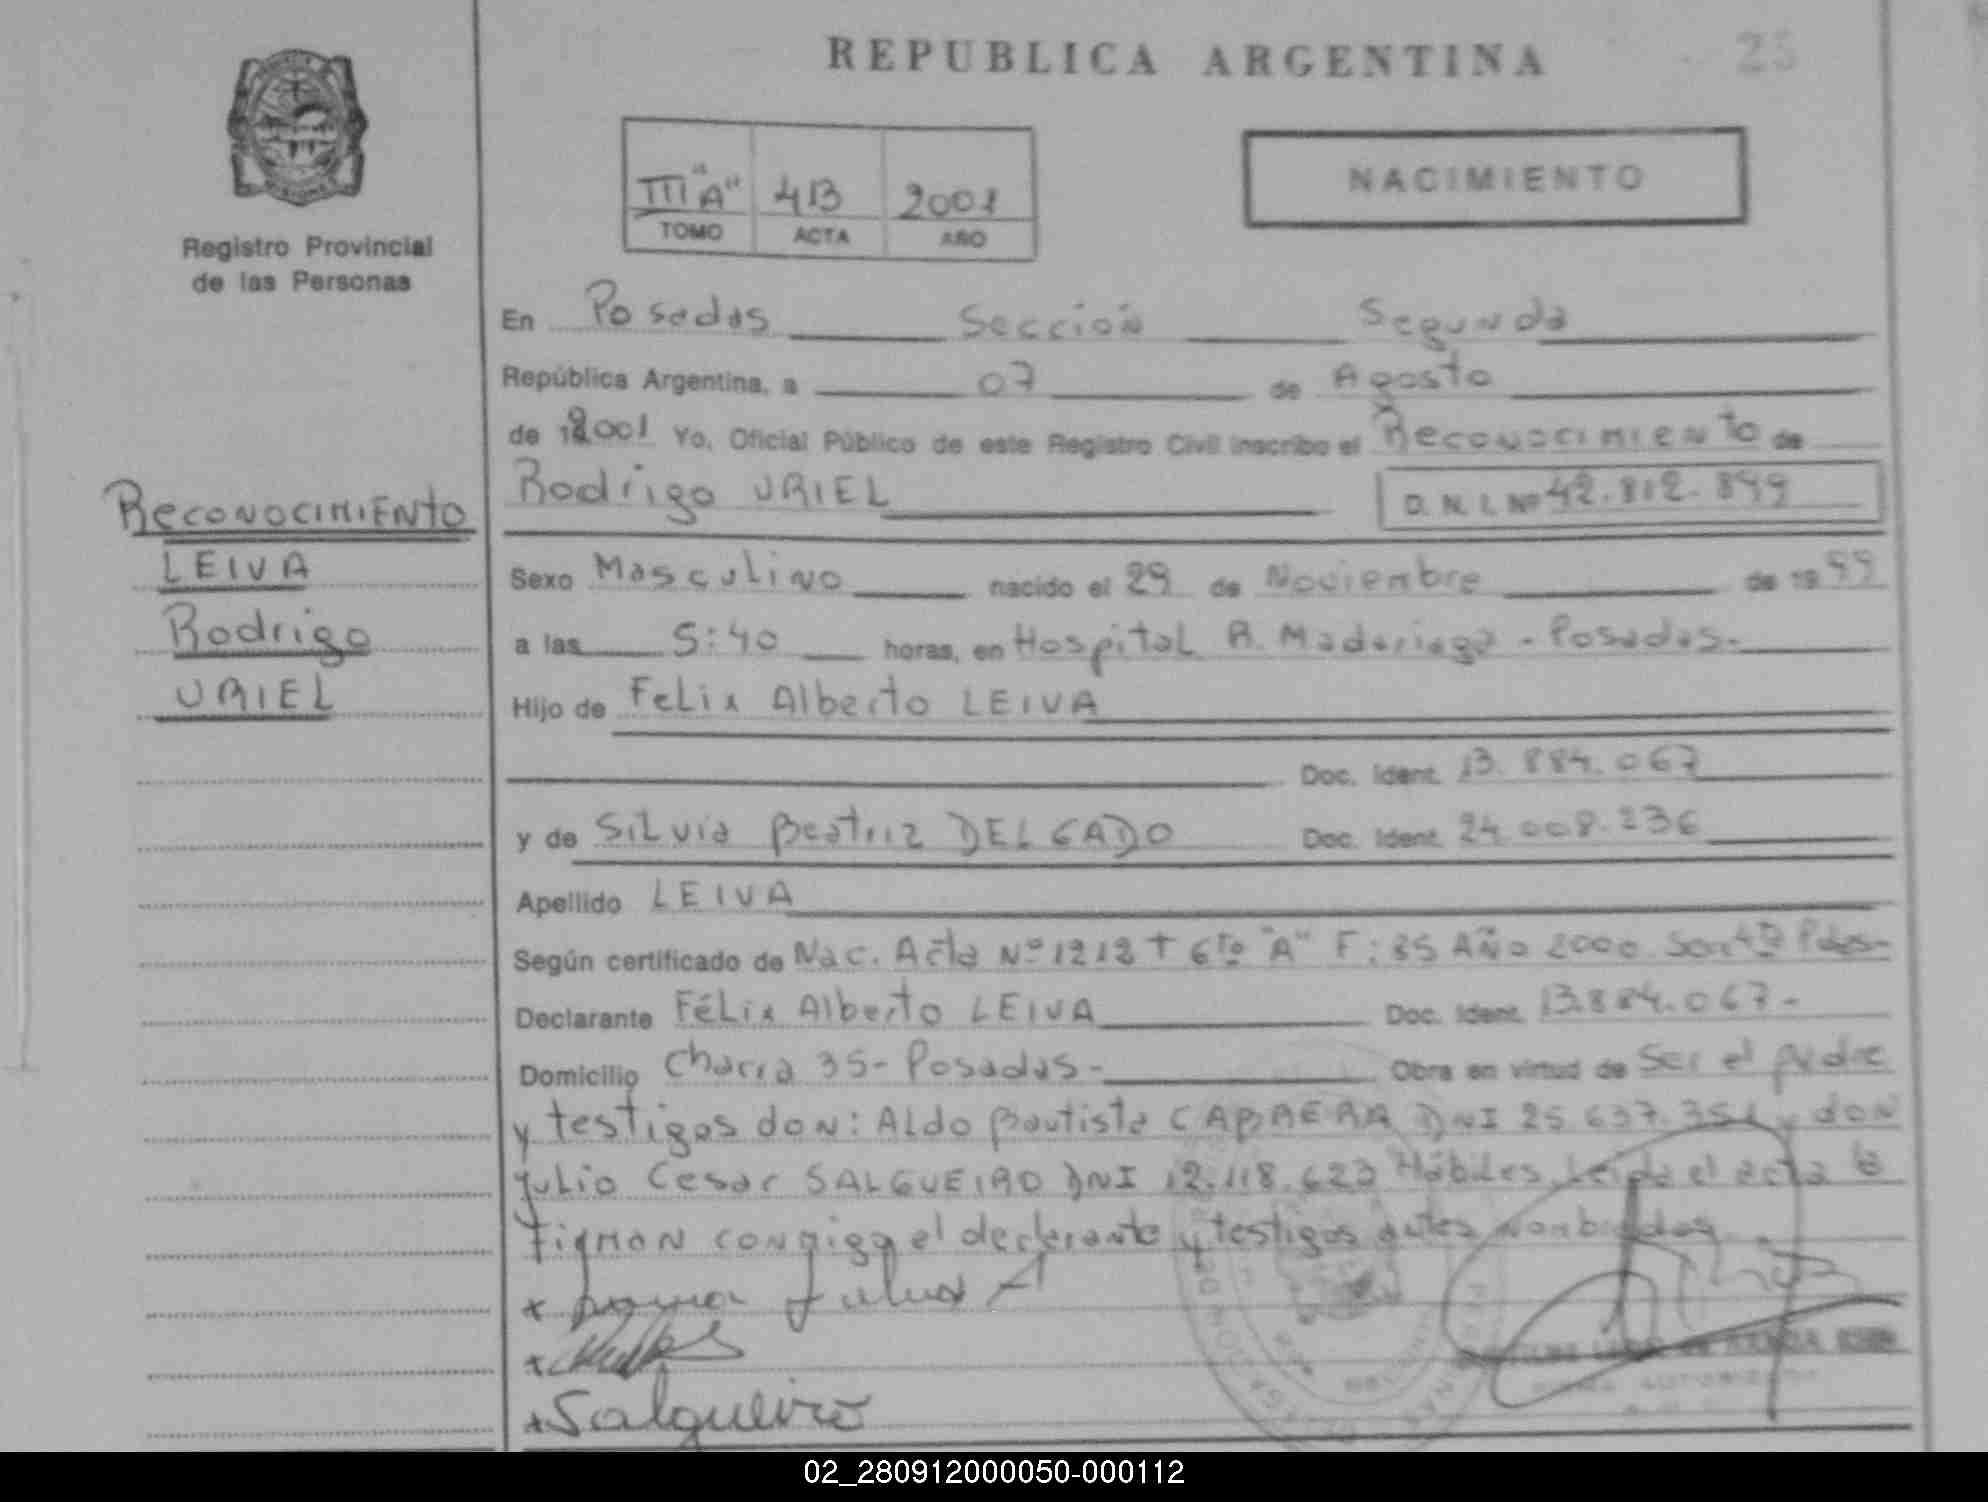 REPUBLICA ARGENTINA 25
Registro Provincial
de las Personas
III "A" 413 2001
TOMO ACTA AÑO
NACIMIENTO
En Posadas Sección Segunda
República Argentina, a 07 de Agosto
de 2001 Yo, Oficial Público de este Registro Civil inscribo el Reconocimiento de
Rodrigo URIEL D. N. I. Nº 42.812.899
Reconocimiento
LEIVA
Rodrigo
URIEL
Sexo Masculino nacido el 29 de Noviembre de 1999
a las 5:40 horas, en Hospital R. Madariaga - Posadas-
Hijo de Felix Alberto LEIVA
Doc. Ident. 13.884.067
y de Silvia Beatriz DELGADO Doc. Ident. 24.008.236
Apellido LEIVA
Según certificado de Nac. Acta Nº 1212 Tº 6to "A" F: 35 Año 2000 4ta
Declarante Félix Alberto LEIVA Doc. Ident. 13.884.067-
Domicilio Chacra 35- Posadas- Obra en virtud de Ser el padre
y testigos don: Aldo Bautista CABRERA DNI 25.637.351 y don
Julio Cesar SALGUEIRO DNI 12.118.623 Hábiles Leida el acta la
Firman conmigo el declarante y testigos antes nombrados
Salgueiro
02_280912000050-000112